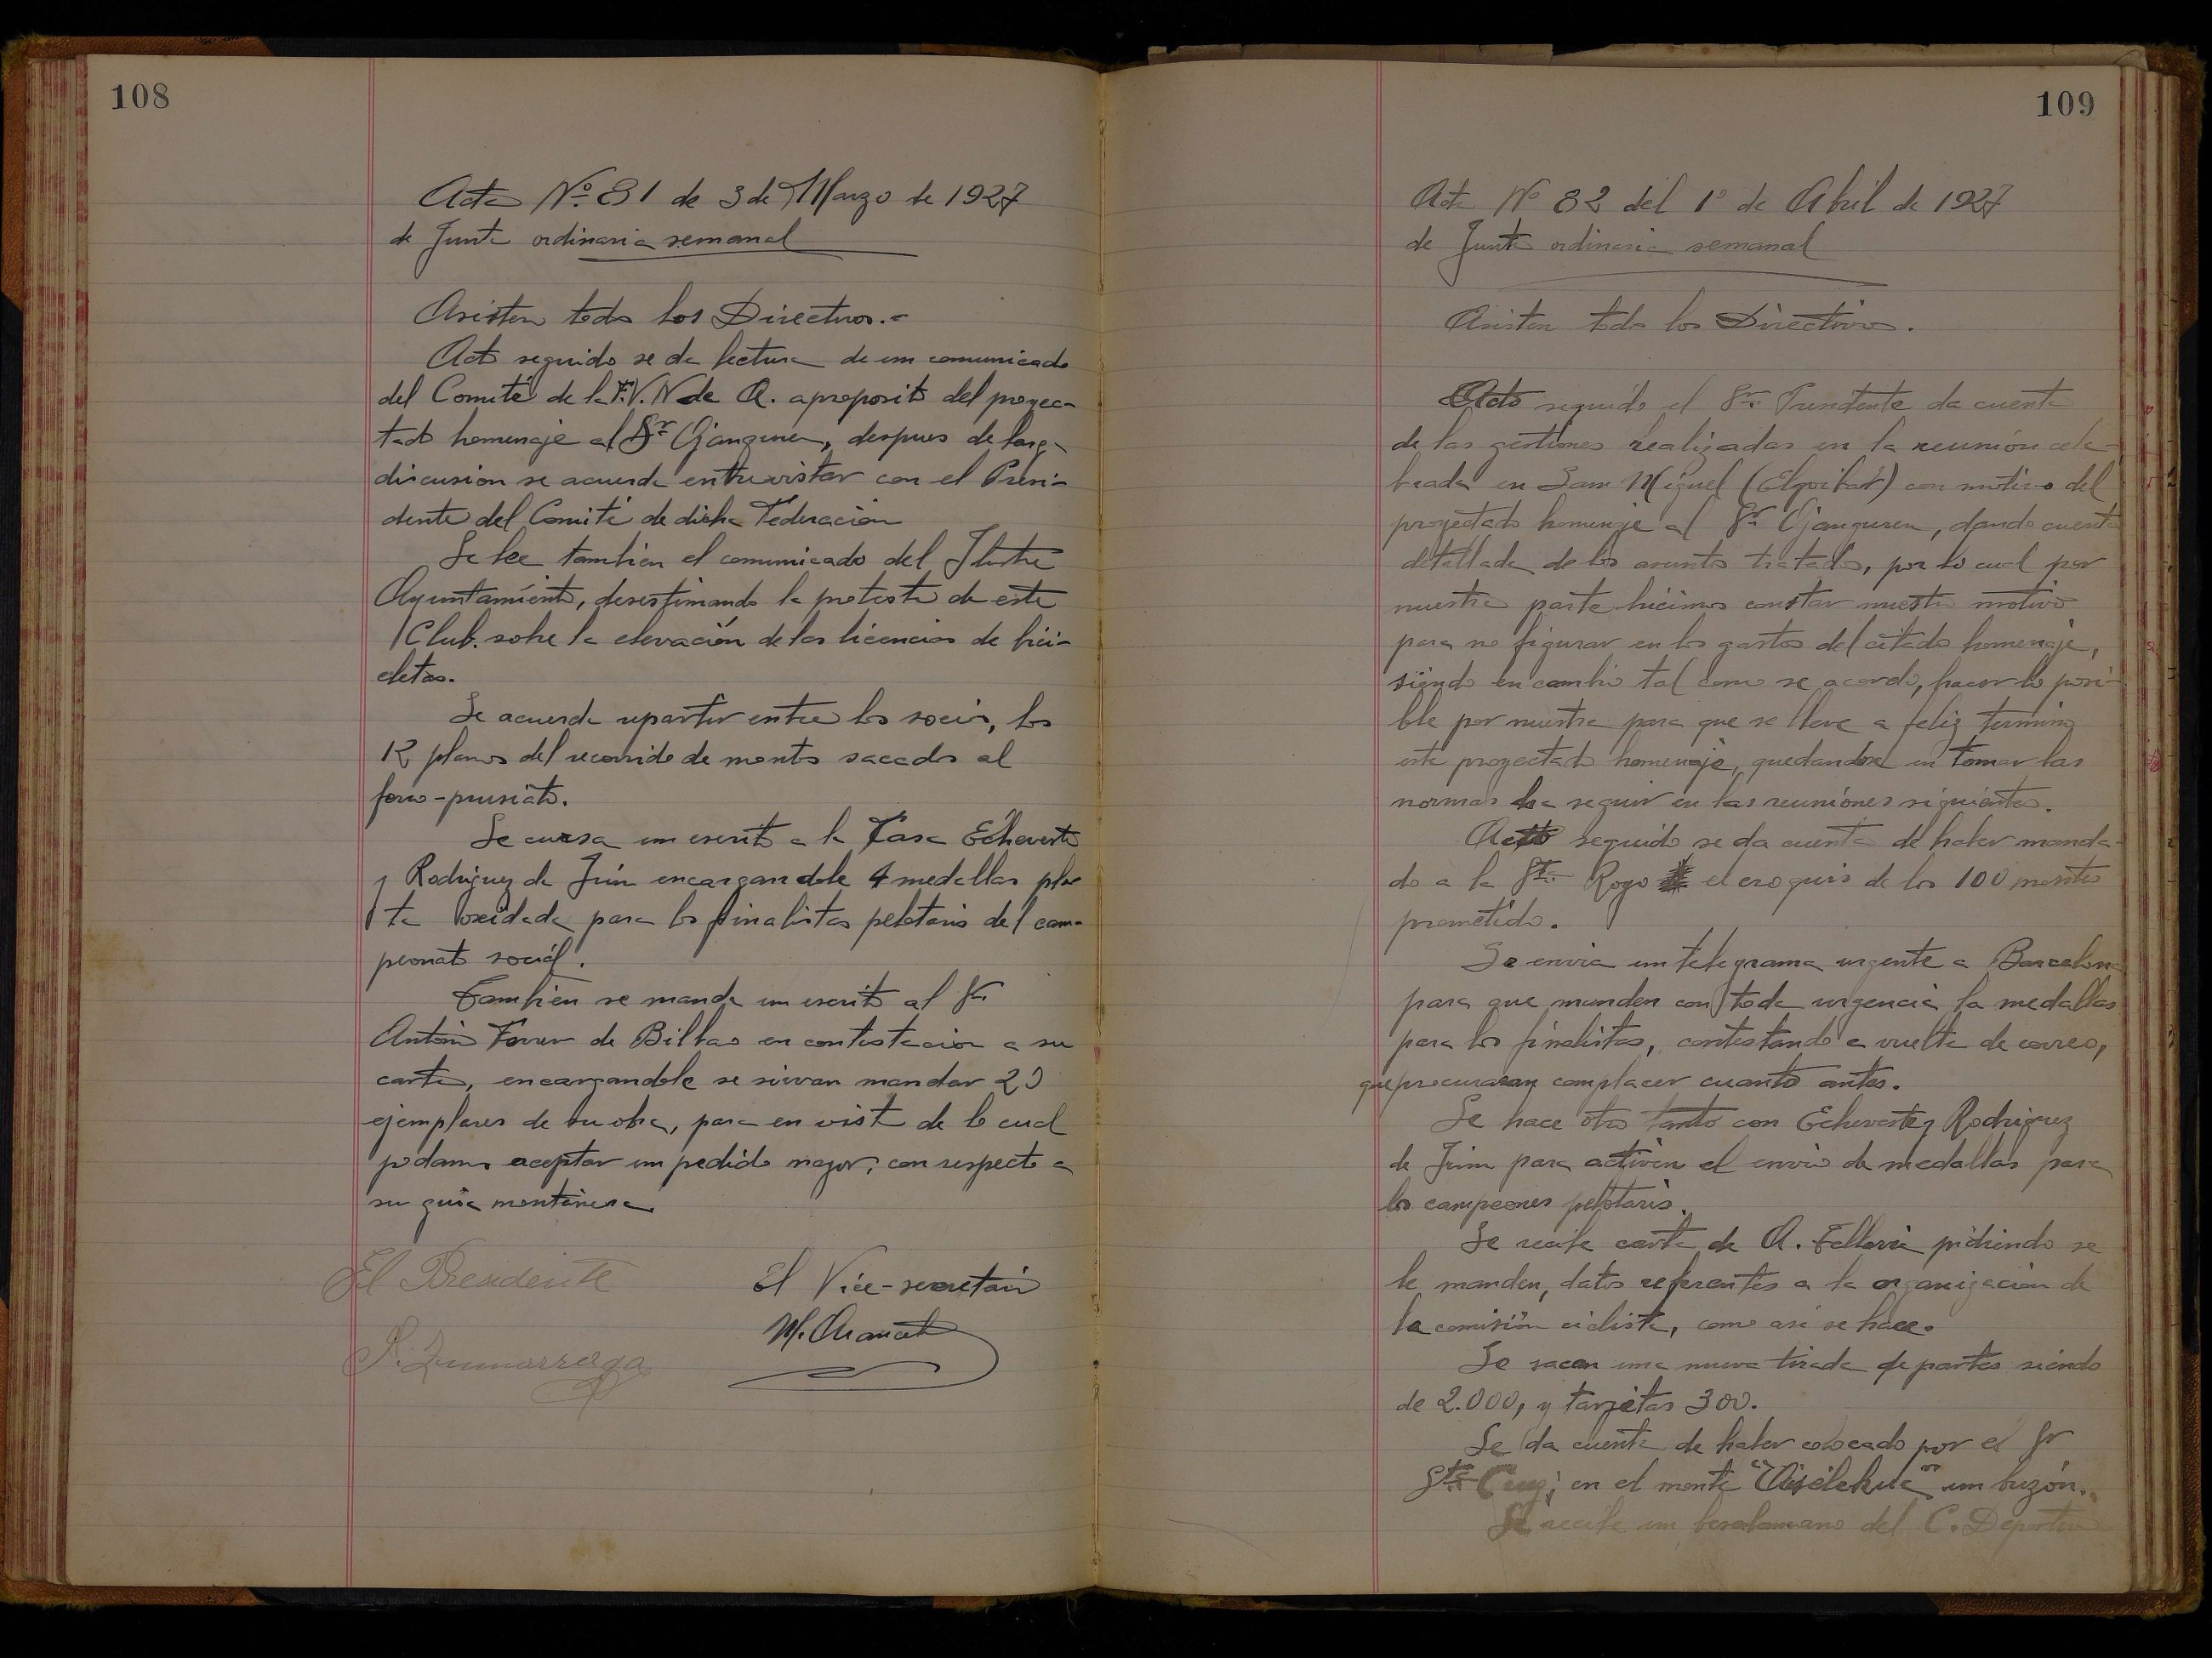 108
Acta Nº 81 de 3 de Marzo de 1927
de Junta ordinaria semanal
Asisten todos los Directivos.=
Acto seguido se da lectura de un comunicado
del Comité de la F.V.N de A. a proposito del proyec-
tado homenaje al Sr Ojanguren, despues de larga
discusion se acuerda entrevistar con el Presi-
dente del Comité de dicha Federacion
Se lee tambien el comunicado del Ilustre
Ayuntamiento, desestimando la protesta de este
Club. sobre la elevación de las licencias de bici-
cletas.
Se acuerda repartir entre los socios, los
12 planos del recorrido de montes sacados al
ferro-prusiato.
Se cursa un escrito a la Casa Echeverte
y Rodriguez de Irún encargandole 4 medallas pla
ta oxidada para los finalistas pelotaris del cam-
peonato social.
Tambien se manda un escrito al Sr.
Antonio Ferrer de Bilbao en contestacion a su
carta, encargandole se sirvan mandar 20
ejemplares de su obra, para en vista de lo cual
podamos aceptar un pedido mayor, con respecto a
su guia montañera
El Presidente
El Vice-secretario
P. Zumarraga
M. Aranceta
109
Acta Nº 82 del 1º de Abril de 1927
de Junta ordinaria semanal
Asisten todos los Directivos.
Acto seguido el Sr. Presidente da cuenta
de las gestiones realizadas en la reunión cele-
brada en San Miguel (Elgoibar) con motivo del
proyectado homenaje al Sr. Ojanguren, dando cuenta
detallada de los asuntos tratados, por lo cual por
nuestra parte hicimos constar nuestro motivo
para no figurar en los gastos del citado homenaje,
siendo en cambio tal como se acordo, hacer lo posi-
ble por nuestra para que se lleve a feliz termino
este proyectado homenaje, quedandose en tomar las
normas a seguir en las reuniones siguientes.
Acto seguido se da cuenta de haber manda-
do a la Sta. Royo el croquis de los 100 montes
prometido.
Se envia un telegrama urgente a Barcelona
para que manden con toda urgencia la medallas
para los finalistas, contestando a vuelta de correo,
que procuraran complacer cuanto antes.
Se hace otro tanto con Echeverte y Rodriguez
de Irun para activen el envio de medallas para
los campeones pelotaris.
Se recibe carta de A. Telleria pidiendo se
le manden, datos referentes a la organización de
la comisión ciclista, como asi se hace.
Se sacan una nueva tirada de partes siendo
de 2.000, y tarjetas 300.
Se da cuenta de haber colocado por el Sr
Sta Cruz; en el monte un buzón.
Se recibe un besalamano del C. Deportivo